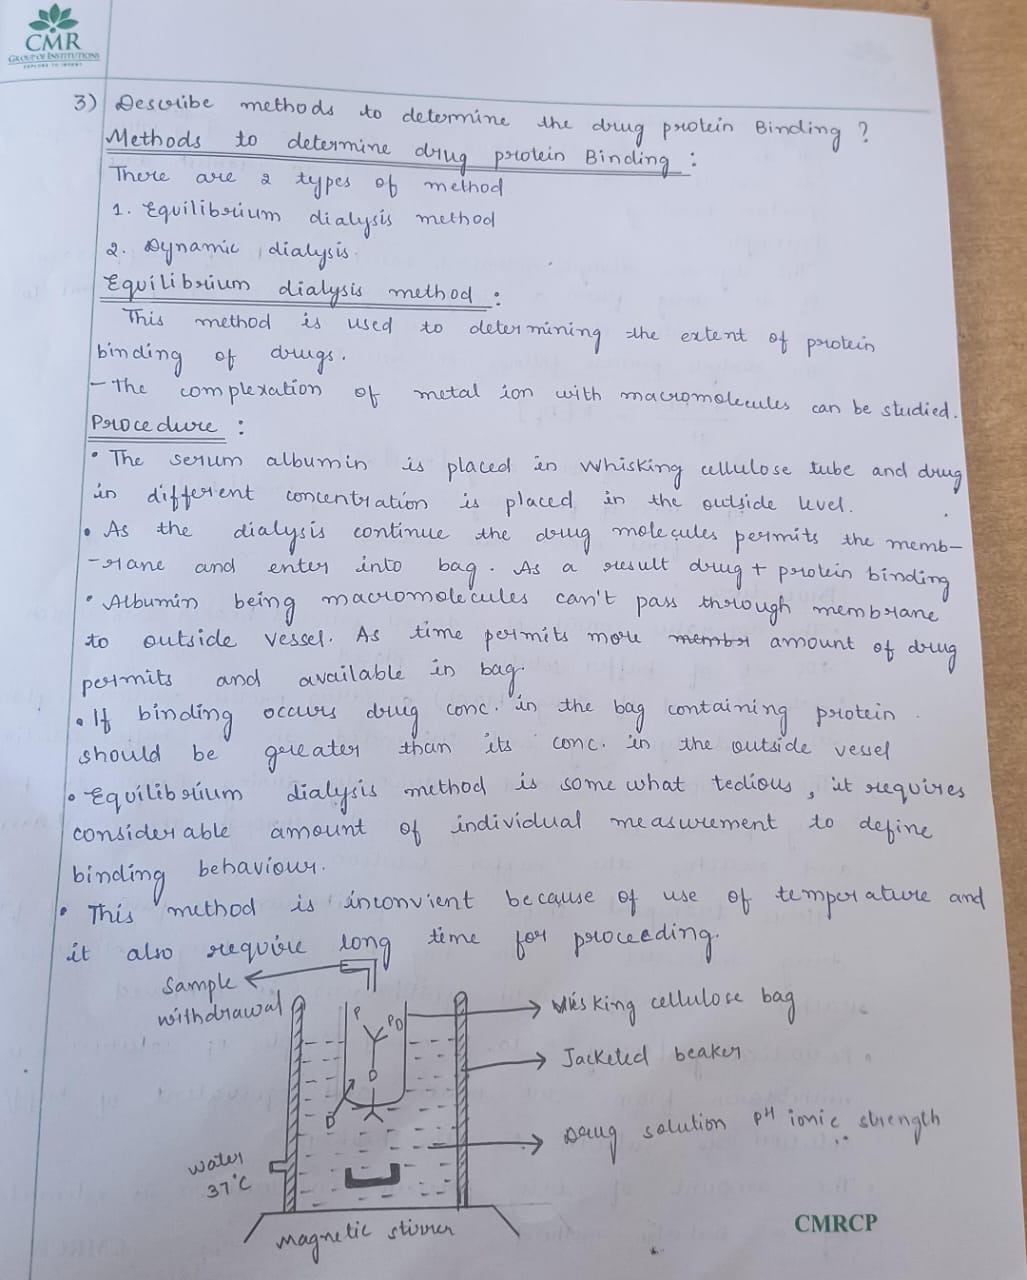 CMR
GROUP OF INSTITUTIONS
EXPLORE TO INVENT
3) Describe methods to determine the drug protein Binding ?
Methods to determine drug protein Binding :
There are 2 types of method
1. Equilibrium dialysis method
2. Dynamic dialysis.
Equilibrium dialysis method :
This method is used to determining the extent of protein
binding of drugs.
- The complexation of metal ion with macromolecules can be studied.
Procedure :
• The serum albumin is placed in Whisking cellulose tube and drug
in different concentration is placed in the outside level.
• As the dialysis continue the drug molecules permits the memb-
-rane and enter into bag. As a result drug + protein binding
• Albumin being macromolecules can't pass through membrane
to outside vessel. As time permits more membr amount of drug
permits and available in bag.
• If binding occurs drug conc. in the bag containing protein
should be greater than its conc. in the outside vessel
• Equilibrium dialysis method is some what tedious, it requires
considerable amount of individual measurement to define
binding behaviour.
• This method is inconvient because of use of temperature and
it also require long time for proceeding.
Sample
withdrawal
P
PD
D
D
Visking cellulose bag
Jacketed beaker
Drug solution PH ionic strength
water
37°C
magnetic stirrer
CMRCP